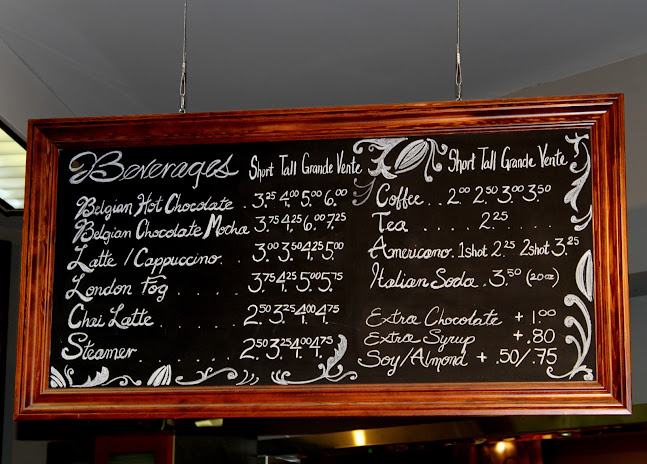 Beverages Short Tall Grande Vente
Belgian Hot Chocolate . 3.25 4.00 5.00 6.00
Belgian Chocolate Mocha 3.75 4.25 6.00 7.25
Latte / Cappuccino. . 3.00 3.50 4.25 5.00
London Fog . . . . . 3.75 4.25 5.00 5.75
Chai Latte . . . . . . 2.50 3.25 4.00 4.75
Steamer . . . . . . . 2.50 3.25 4.00 4.75
Short Tall Grande Vente
Coffee . . 2.00 2.50 3.00 3.50
Tea . . . . . 2.25 . . . .
Americano. 1shot 2.25 2shot 3.25
Italian Soda . 3.50 (20oz)
Extra Chocolate + 1.00
Extra Syrup + .80
Soy/Almond + .50/.75